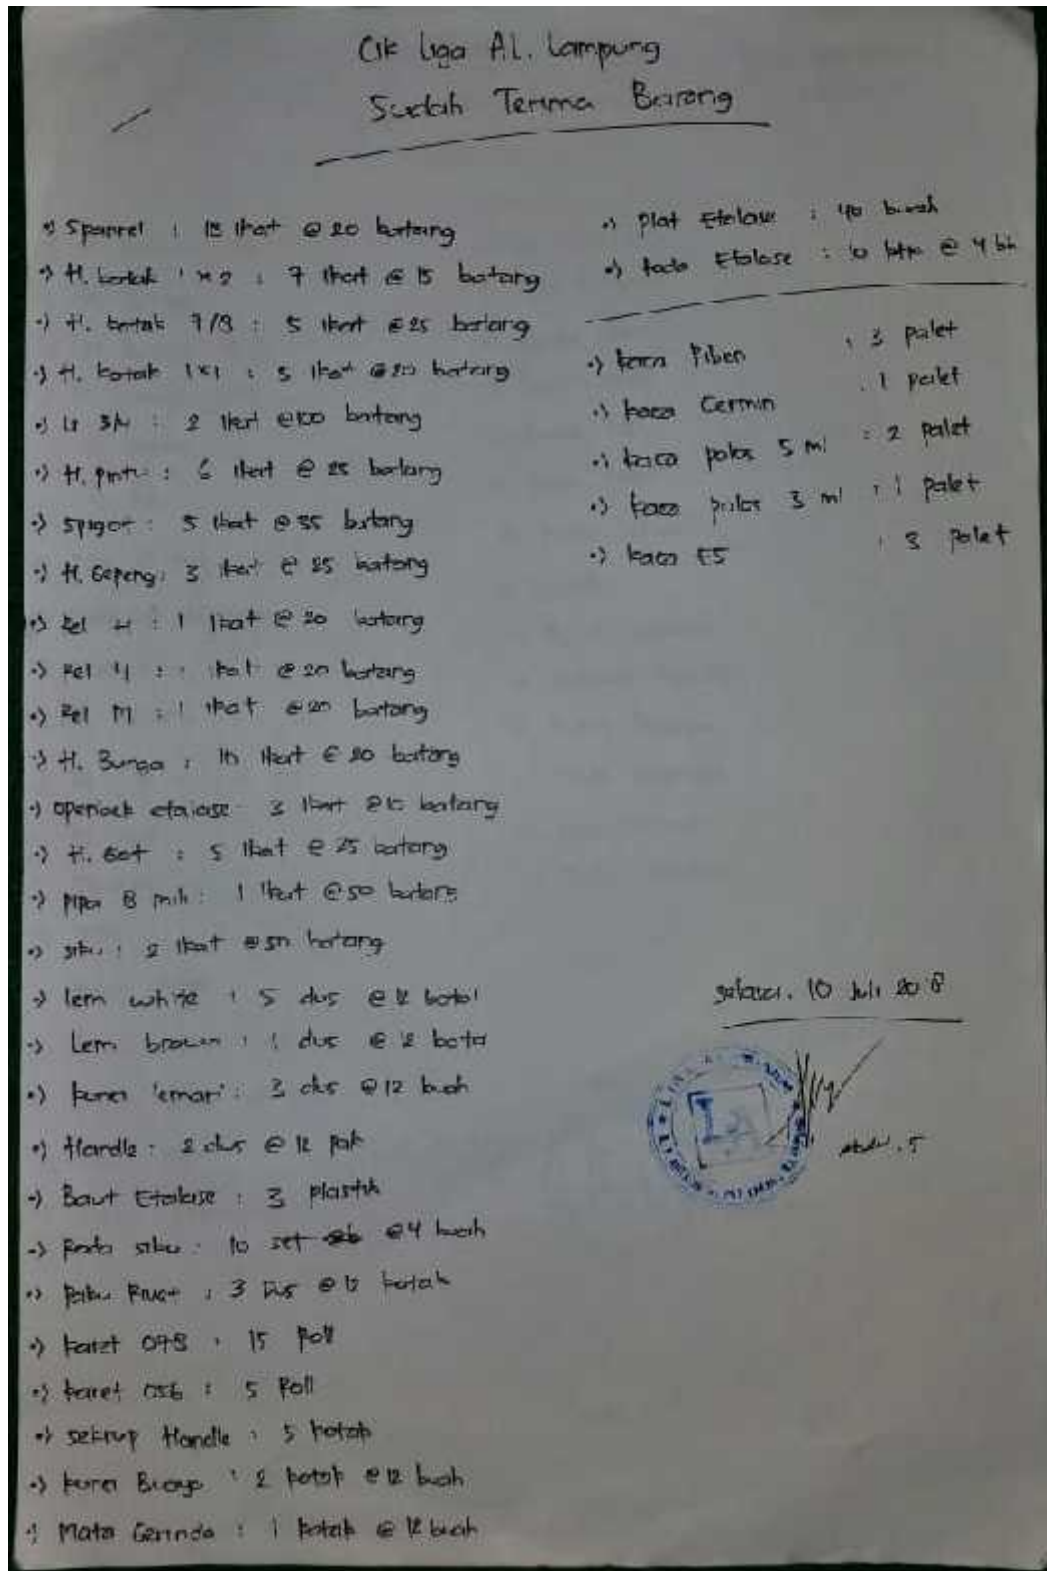 Cik Liga AL. Lampung
Sudah Terima Barang
•) Spanrel : 15 ikat @ 20 batang
•) H. kotak 1x2 : 7 ikat @ 15 batang
•) H. kotak 7/8 : 5 ikat @ 25 batang
•) H. kotak 1x1 : 5 ikat @ 20 batang
•) 3/4 : 2 ikat @ 100 batang
•) H. pintu : ikat @ 25 batang
•) Spigot : 5 ikat @ 35 batang
•) H. Gepeng : 3 ikat @ 25 batang
•) Rel H : 1 ikat @ 20 batang
•) Rel : 1 ikat @ 20 batang
•) Rel M : 1 ikat @ 20 batang
•) H. Bunga : 10 ikat @ 20 batang
•) openack etalase : 3 ikat @ batang
•) H. Got : 5 ikat @ 25 batang
•) Pipa 8 mili : 1 ikat @ 50 batang
•) siku : 2 ikat @ 50 batang
•) lem white : 5 dus @ 12 botol
•) Lem brown : 1 dus @ 12 botol
•) kunci lemari : 3 dus @ 12 buah
•) Handle : 2 dus @ 12 pak
•) Baut Etalase : 3 plastik
•) Roda siku : 10 set @ 4 buah
•) Paku : 3 Dus @ 12 kotak
•) karet 078 : 15 Roll
•) karet 056 : 5 Roll
•) sekrup Handle : 5 kotak
•) kunci Buaya : 2 kotak @ 12 buah
•) Mata Gerinda : 1 kotak @ 12 buah
•) Plat Etalase : 40 buah
•) Roda Etalase : 10 @ 4 bh
•) kaca Riben : 3 palet
•) kaca Cermin : 1 palet
•) kaca polos 5 ml : 2 palet
•) kaca polos 3 ml : 1 palet
•) kaca ES : 3 palet
selasa, 10 Juli 2018